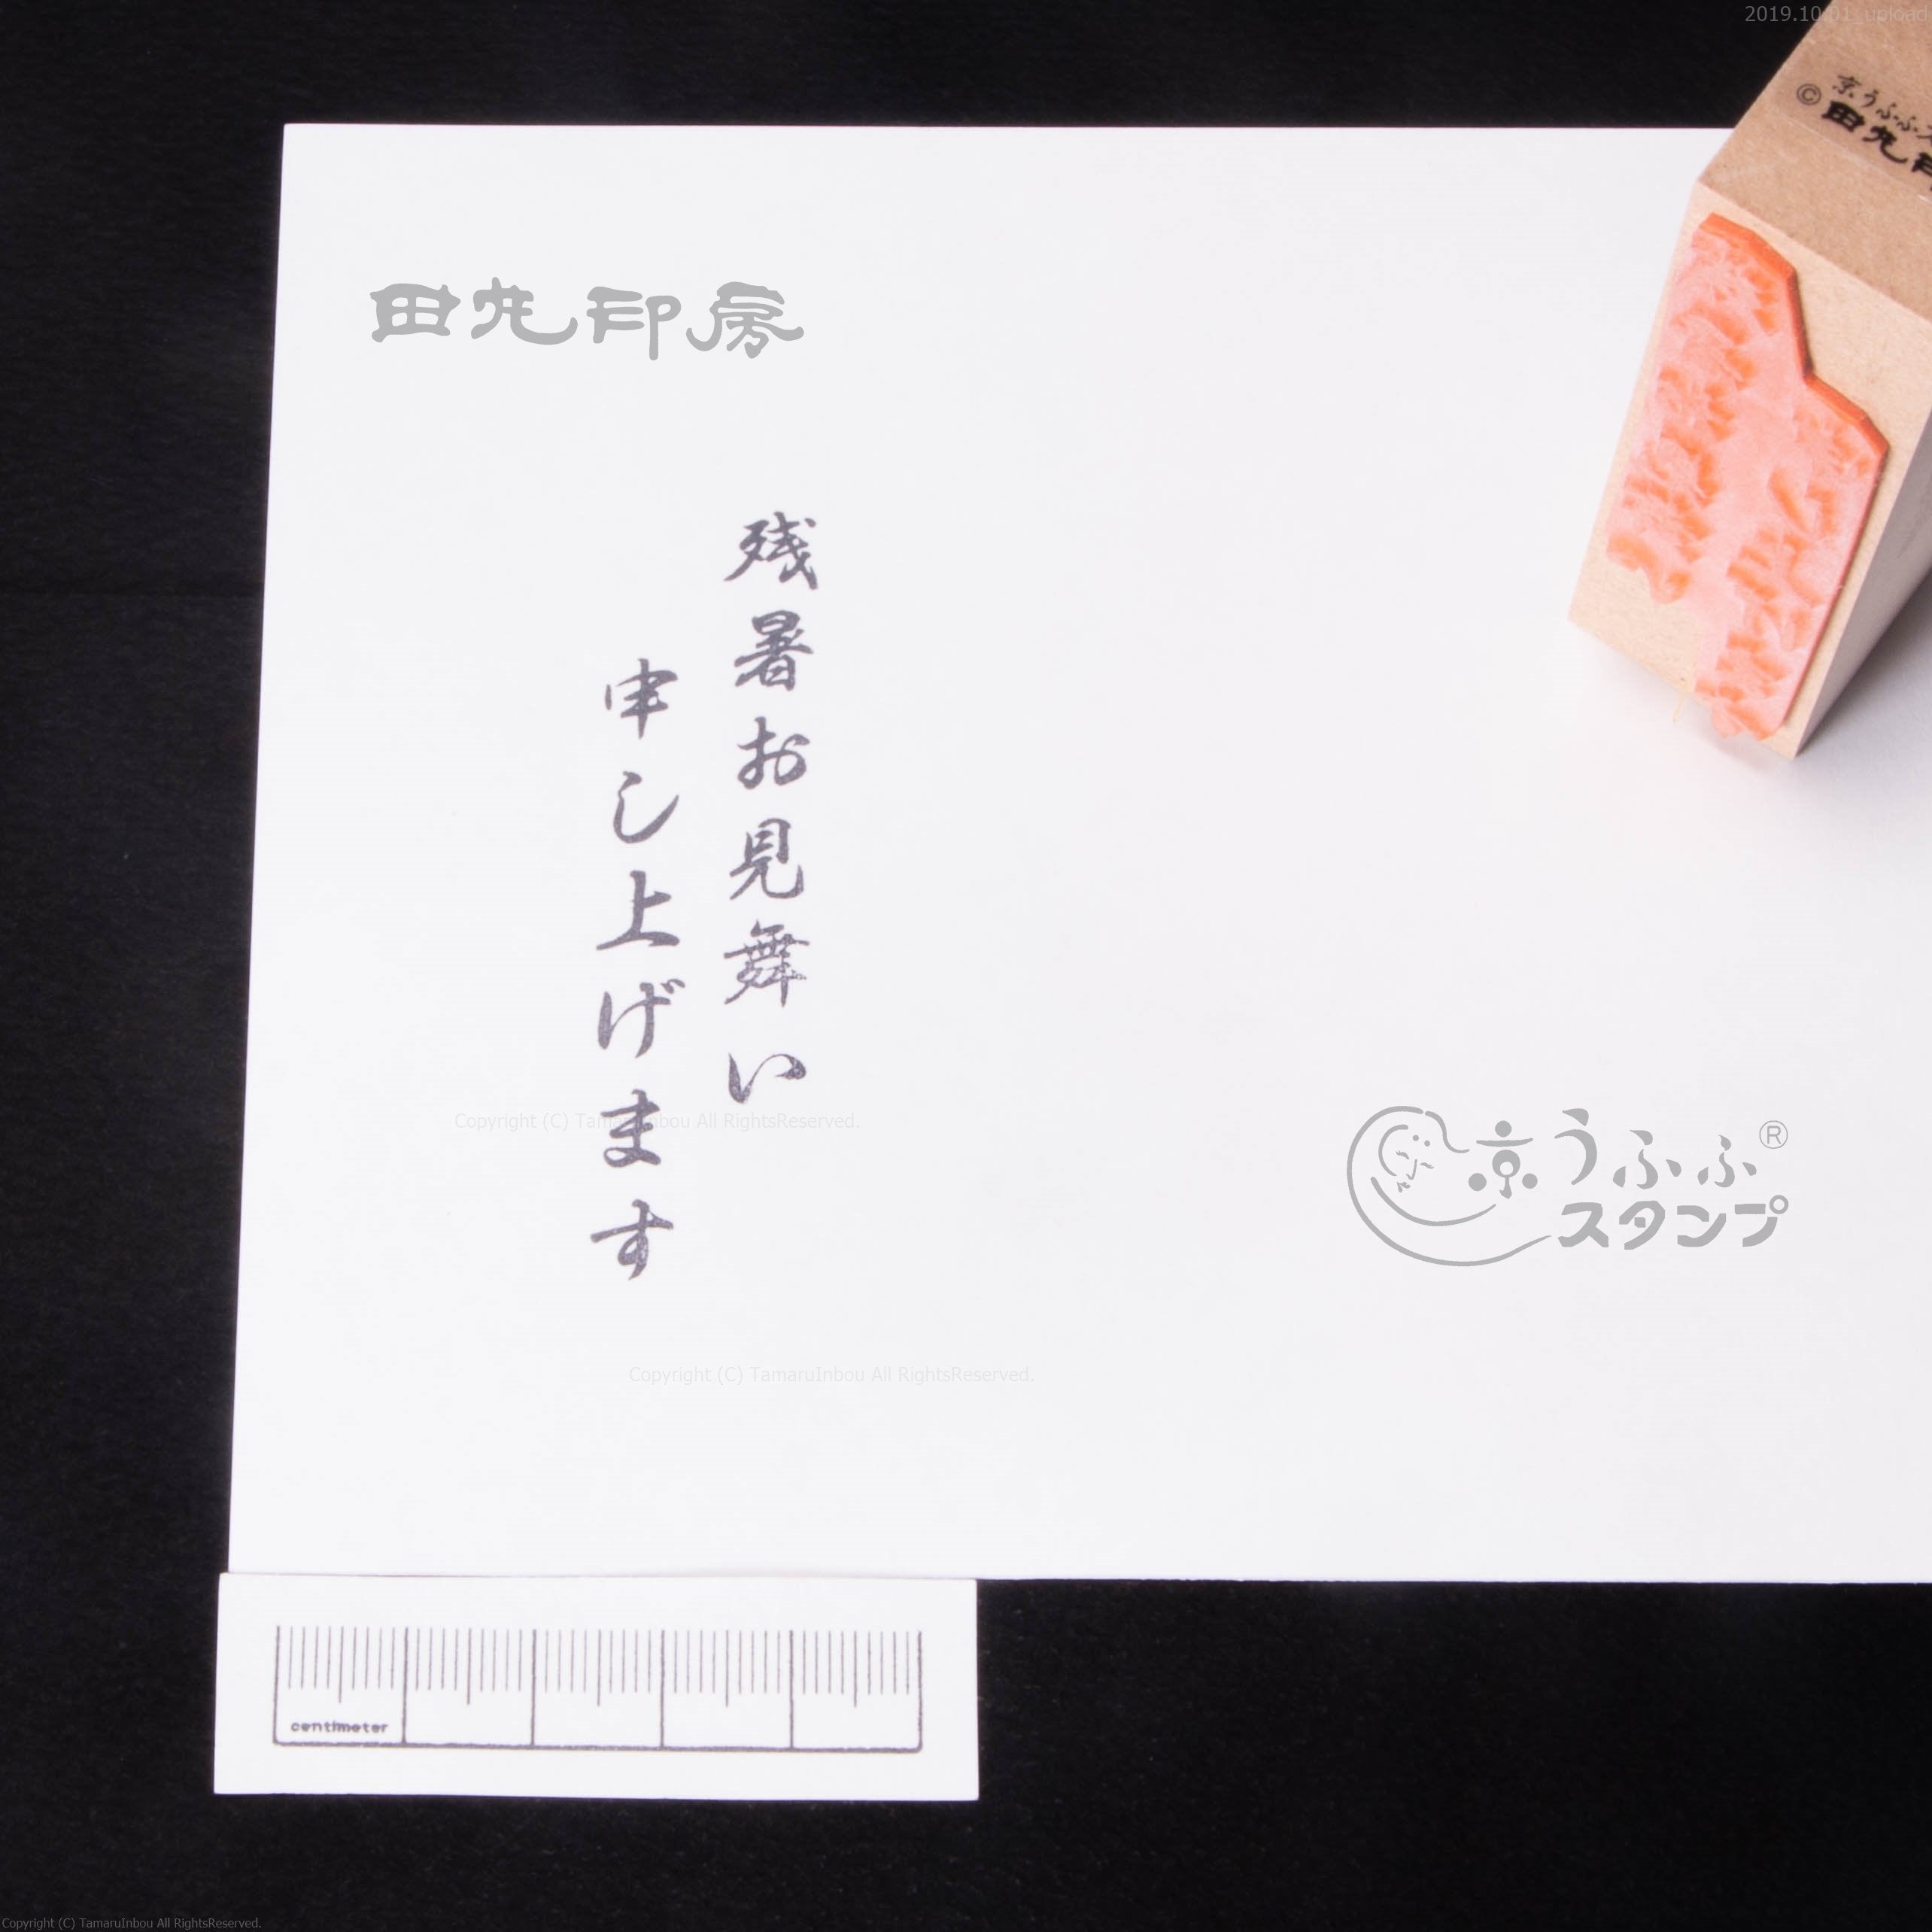 2019.10.01_upload
京うふふ
© 田丸印
田丸印房
残暑お見舞い
申し上げます
Copyright (C) TamaruInbou All RightsReserved.
京うふふ®
スタンプ
Copyright (C) TamaruInbou All RightsReserved.
centimeter
Copyright (C) TamaruInbou All RightsReserved.